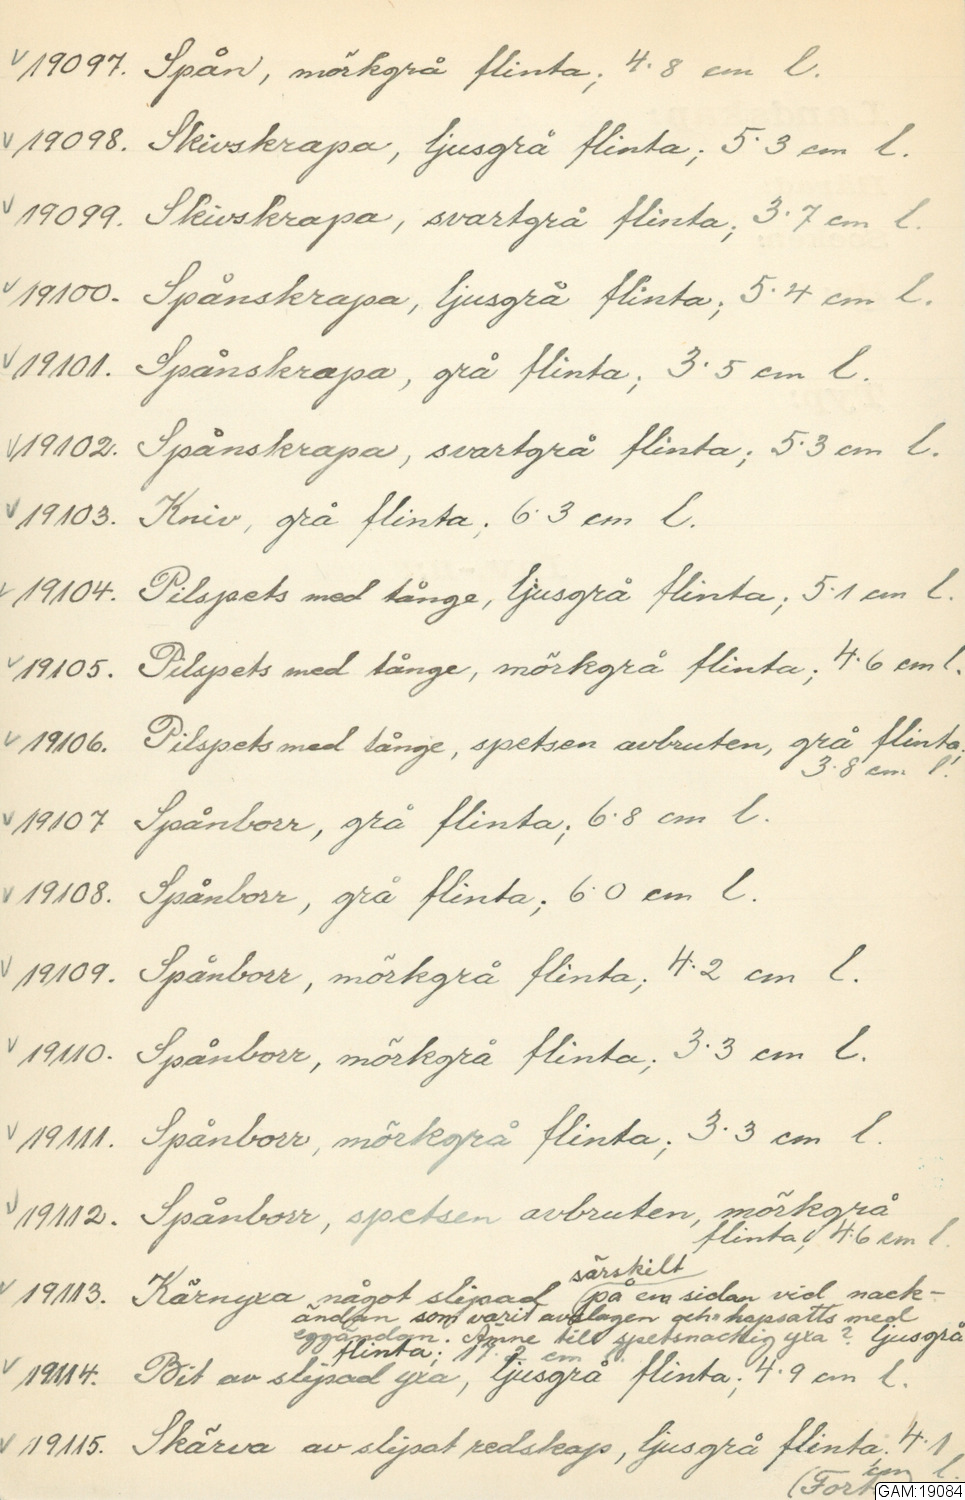 v 19097. Spån, mörkgrå flinta; 4.8 cm l.
v 19098. Skivskrapa, ljusgrå flinta; 5.3 cm l.
v 19099. Skivskrapa, svartgrå flinta; 3.7 cm l.
v 19100. Spånskrapa, ljusgrå flinta; 5.4 cm l.
v 19101. Spånskrapa, grå flinta; 3.5 cm l.
v 19102. Spånskrapa, svartgrå flinta; 5.3 cm l.
v 19103. Kniv, grå flinta; 6.3 cm l.
v 19104. Pilspets med tånge, ljusgrå flinta; 5.1 cm l.
v 19105. Pilspets med tånge, mörkgrå flinta; 4.6 cm l.
v 19106. Pilspets med tånge, spetsen avbruten, grå flinta;
3.8 cm l.
v 19107 Spånborr, grå flinta; 6.8 cm l.
v 19108. Spånborr, grå flinta; 6.0 cm l.
v 19109. Spånborr, mörkgrå flinta; 4.2 cm l.
v 19110. Spånborr, mörkgrå flinta; 3.3 cm l.
v 19111. Spånborr, mörkgrå flinta; 3.3 cm l.
v 19112. Spånborr, spetsen avbruten, mörkgrå
flinta; 4.6 cm l.
särskilt
v 19113. Kärnyxa något slipad på ena sidan vid nack-
ändan som varit avslagen och hopsatts med
eggändan. Ämne till spetsnackig yxa? ljusgrå
flinta; cm
v 19114. Bit av slipad yxa, ljusgrå flinta; 4.9 cm l.
v 19115. Skärva av slipat redskap, ljusgrå flinta. 4.1
cm l.
(Fort
GAM:19084